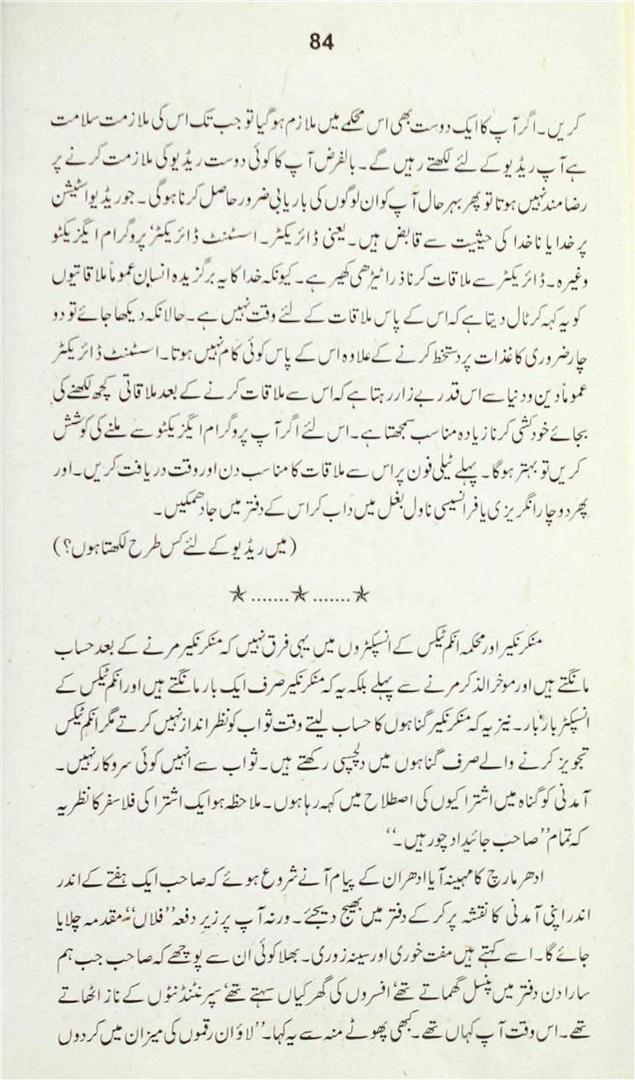 84
کریں۔ اگر آپ کا ایک دوست بھی اس محکمے میں ملازم ہو گیا تو جب تک اس کی ملازمت سلامت
ہے آپ ریڈیو کے لئے لکھتے رہیں گے۔ بالفرض آپ کا کوئی دوست ریڈیو کی ملازمت کرنے پر
رضامند نہیں ہوتا تو پھر بہر حال آپ کو ان لوگوں کی باریابی ضرور حاصل کرنا ہوگی۔ جو ریڈیو اسٹیشن
پر خدا یا ناخدا کی حیثیت سے قابض ہیں۔ یعنی ڈائریکٹر۔ اسسٹنٹ ڈائریکٹر' پروگرام ایگزیکٹو
وغیرہ۔ ڈائریکٹر سے ملاقات کرنا ذرا ٹیڑھی کھیر ہے۔ کیونکہ خدا کا یہ برگزیدہ انسان عموماً ملاقاتیوں
کو یہ کہہ کر ٹال دیتا ہے کہ اس کے پاس ملاقات کے لئے وقت نہیں ہے۔ حالانکہ دیکھا جائے تو دو
چار ضروری کاغذات پر دستخط کرنے کے علاوہ اس کے پاس کوئی کام نہیں ہوتا۔ اسسٹنٹ ڈائریکٹر
عموماً دین و دنیا سے اس قدر بے زار رہتا ہے کہ اس سے ملاقات کرنے کے بعد ملاقاتی کچھ لکھنے کی
بجائے خودکشی کرنا زیادہ مناسب سمجھتا ہے۔ اس لئے اگر آپ پروگرام ایگزیکٹو سے ملنے کی کوشش
کریں تو بہتر ہوگا۔ پہلے ٹیلی فون پر اس سے ملاقات کا مناسب دن اور وقت دریافت کریں۔ اور
پھر دو چار انگریزی یا فرانسیسی ناول بغل میں داب کر اس کے دفتر میں جا دھمکیں۔
(میں ریڈیو کے لئے کس طرح لکھتا ہوں؟)
★.......★.......★
منکر نکیر اور محکمہ انکم ٹیکس کے انسپکٹروں میں یہی فرق نہیں کہ منکر نکیر مرنے کے بعد حساب
مانگتے ہیں اور موخر الذکر مرنے سے پہلے بلکہ یہ کہ منکر نکیر صرف ایک بار مانگتے ہیں اور انکم ٹیکس کے
انسپکٹر بار بار۔ نیز یہ کہ منکر نکیر گناہوں کا حساب لیتے وقت ثواب کو نظر انداز نہیں کرتے مگر انکم ٹیکس
تجویز کرنے والے صرف گناہوں میں دلچسپی رکھتے ہیں۔ ثواب سے انہیں کوئی سروکار نہیں۔
آمدنی کو گناہ میں اشتراکیوں کی اصطلاح میں کہہ رہا ہوں۔ ملاحظہ ہو ایک اشتراکی فلاسفر کا نظریہ
کہ تمام ”صاحب جائیداد چور ہیں۔“
ادھر مارچ کا مہینہ آیا ادھر ان کے پیام آنے شروع ہوئے کہ صاحب ایک ہفتے کے اندر
اندر اپنی آمدنی کا نقشہ پر کر کے دفتر میں بھیج دیجئے۔ ورنہ آپ پر زیر دفعہ ”فلاں“ مقدمہ چلایا
جائے گا۔ اسے کہتے ہیں مفت خوری اور سینہ زوری۔ بھلا کوئی ان سے پوچھے کہ صاحب جب ہم
سارا دن دفتر میں پنسل گھماتے تھے' افسروں کی گھرکیاں سہتے تھے' سپرنٹنڈنٹوں کے ناز اٹھاتے
تھے۔ اس وقت آپ کہاں تھے۔ کبھی پھوٹے منہ سے یہ کہا۔ ”لاؤ ان رقموں کی میزان میں کر دوں